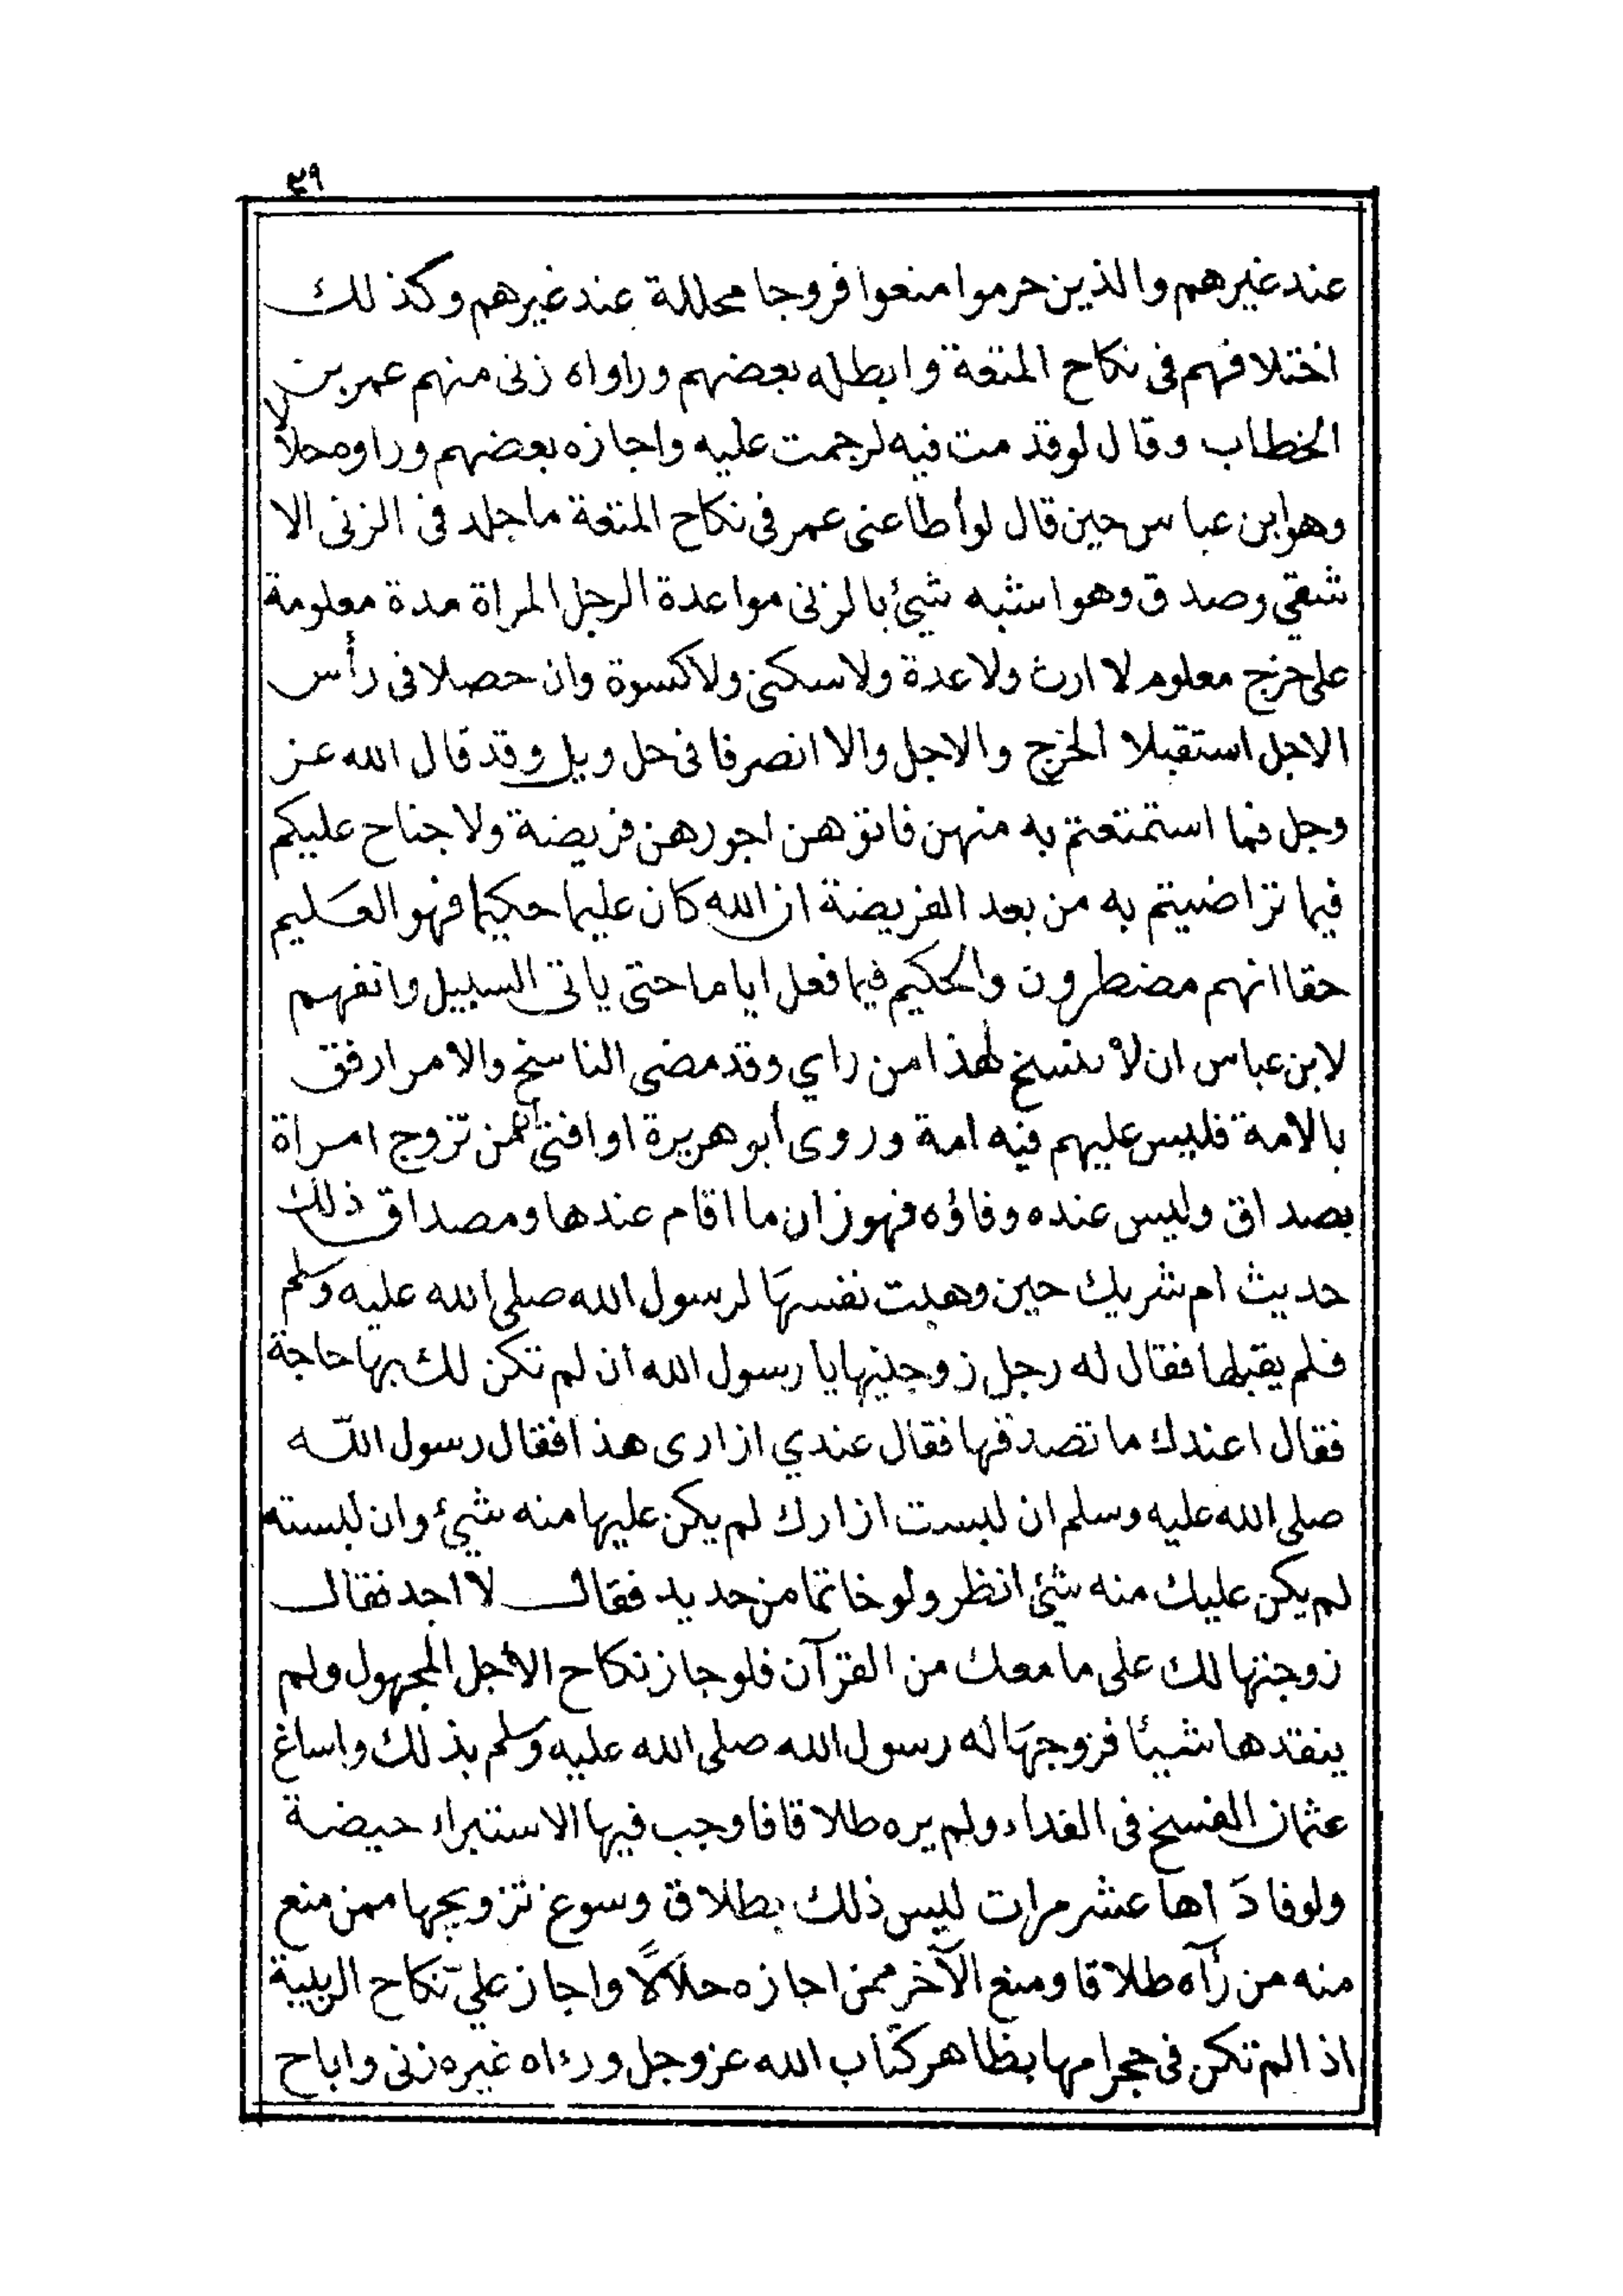 ٣٩
عند غيرهم والذين حرموا منعوا فروجا محللة عند غيرهم وكذلك
اختلافهم فى نكاح المتعة وابطله بعضهم وراواه زنى منهم عمر بن
الخطاب وقال لو قدمت فيه لرجمت عليه واجازه بعضهم وراوه حلالا
وهو ابن عباس حين قال لو أطاعنى عمر فى نكاح المتعة ما جلد فى الزنى الا
شقي وصدق وهو اشبه شيئ بالزنى مواعدة الرجل المراة مدة معلومة
على خرج معلوم لا ارث ولا عدة ولا سكنى ولا كسوة وان حصلا فى رأس
الاجل استقبلا الخرج والاجل والا انصرفا فى حل وبل وقد قال الله عز
وجل فما استمتعتم به منهن فاتوهن اجورهن فريضة ولا جناح عليكم
فيما تراضيتم به من بعد الفريضة ان الله كان عليما حكيما فهو العليم
حقا انهم مضطرون والحكيم فيما فعل اياما حتى ياتى السبيل وانفهم
لابن عباس ان لا ينسخ لهذا من راي وقد مضى الناسخ والامر ارفق
بالامة فليس عليهم فيه امة وروى أبو هريرة او افتى ممن تزوج امراة
بصداق وليس عنده وفاؤه فهو زان ما اقام عندها ومصداق ذلك
حديث ام شريك حين وهبت نفسها لرسول الله صلى الله عليه وسلم
فلم يقبلها فقال له رجل زوجنيها يا رسول الله ان لم تكن لك بها حاجة
فقال اعندك ما تصدقها فقال عندي ازارى هذا فقال رسول الله
صلى الله عليه وسلم ان لبست ازارك لم يكن عليها منه شيئ وان لبسته
لم يكن عليك منه شيئ انظر ولو خاتما من حديد فقال لا اجد فقال
زوجتها لك على ما معك من القرآن فلو جاز نكاح الأجل المجهول ولم
ينقدها شيئا فزوجها له رسول الله صلى الله عليه وسلم بذلك واساغ
عثمان الفسخ فى الفداء ولم يره طلاقا فاوجب فيها الاستبراء حيضة
ولو فاداها عشر مرات ليس ذلك بطلاق وسوغ تزويجها ممن منع
منه من رآه طلاقا ومنع الآخر ممن اجازه حلالا واجاز علي نكاح الربيبة
اذا لم تكن فى حجر امها بظاهر كتاب الله عز وجل ورءاه غيره زنى واباح